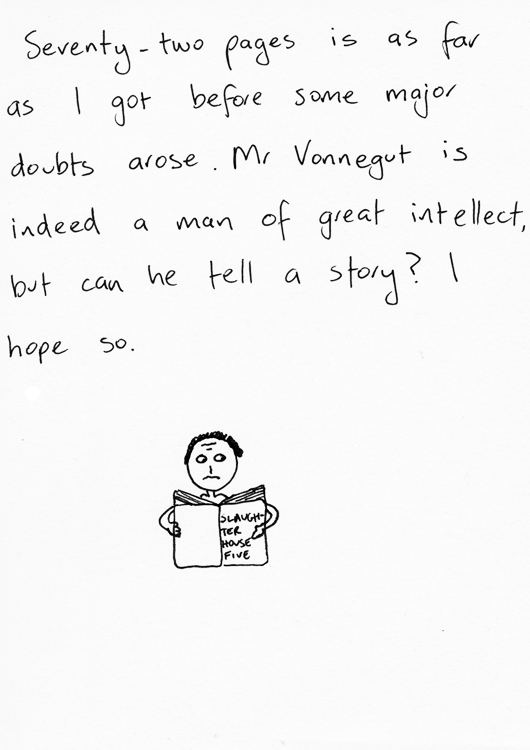 Seventy-two pages is as far
as I got before some major
doubts arose. Mr Vonnegut is
indeed a man of great intellect,
but can he tell a story? I
hope so.
SLAUGH-
TER
HOUSE
FIVE